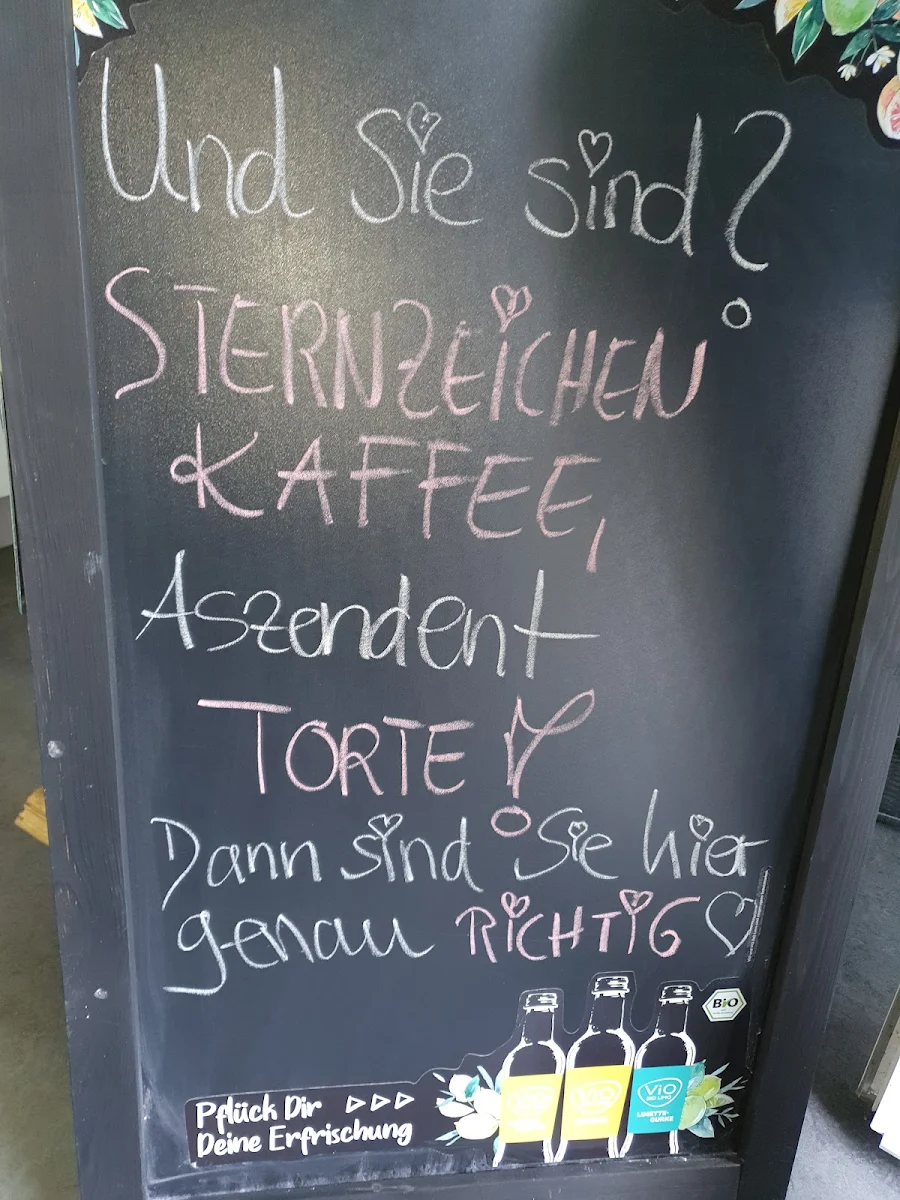 Und Sie sind?
STERNZEICHEN
KAFFEE,
Aszendent
TORTE!
Dann sind Sie hier
genau RiCHTiG
BiO
ViO
BIO LIMO
LIMETTE-
GURKE
Pflück Dir
Deine Erfrischung